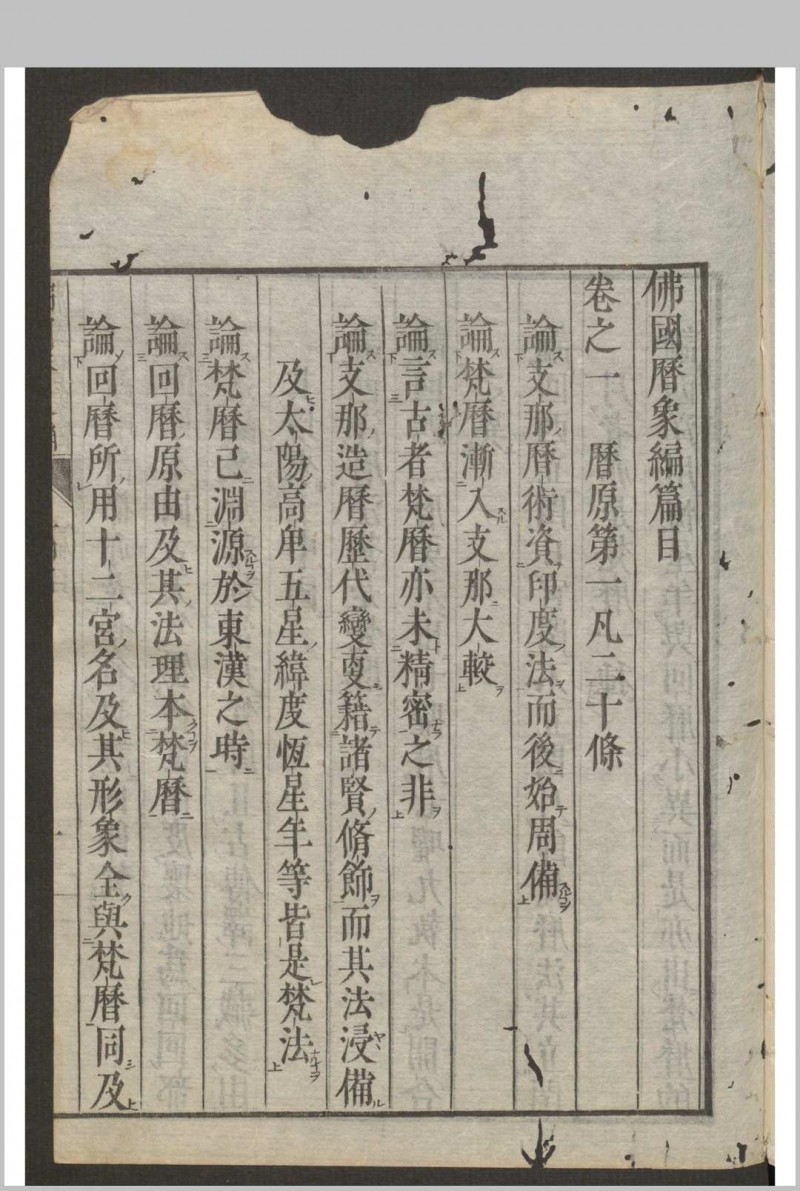 佛國暦象編篇目
卷之一　暦原第一凡二十條
論支那暦術資印度法而後始周備
論梵暦漸入支那大較
論言古者梵暦亦未精密之非
論支那造暦歷代變更籍諸賢脩飾而其法浸備
及太陽高卑五星緯度恆星年等皆是梵法
論梵暦已淵源於東漢之時
論回暦原由及其法理本梵暦
論回暦所用十二宮名及其形象全與梵暦同及